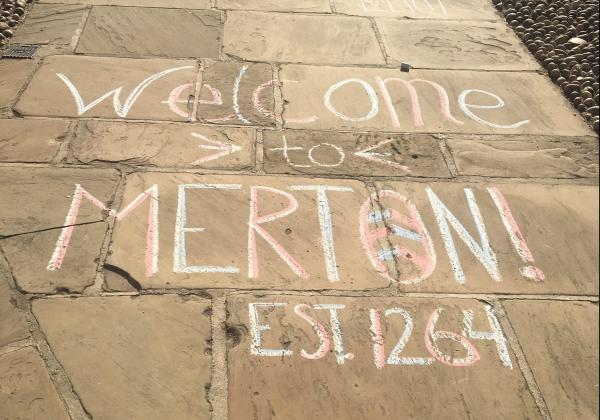 Welcome
to
MERTON!
EST. 1264